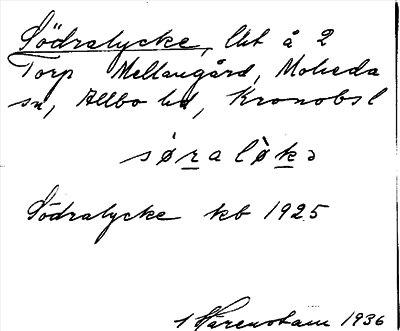 Södralycke, lht å 2
Torp Mellangård, Moheda
sn, Allbo hd, Kronobsl
søralø̀kɔ
Södralycke kb 1925
1936